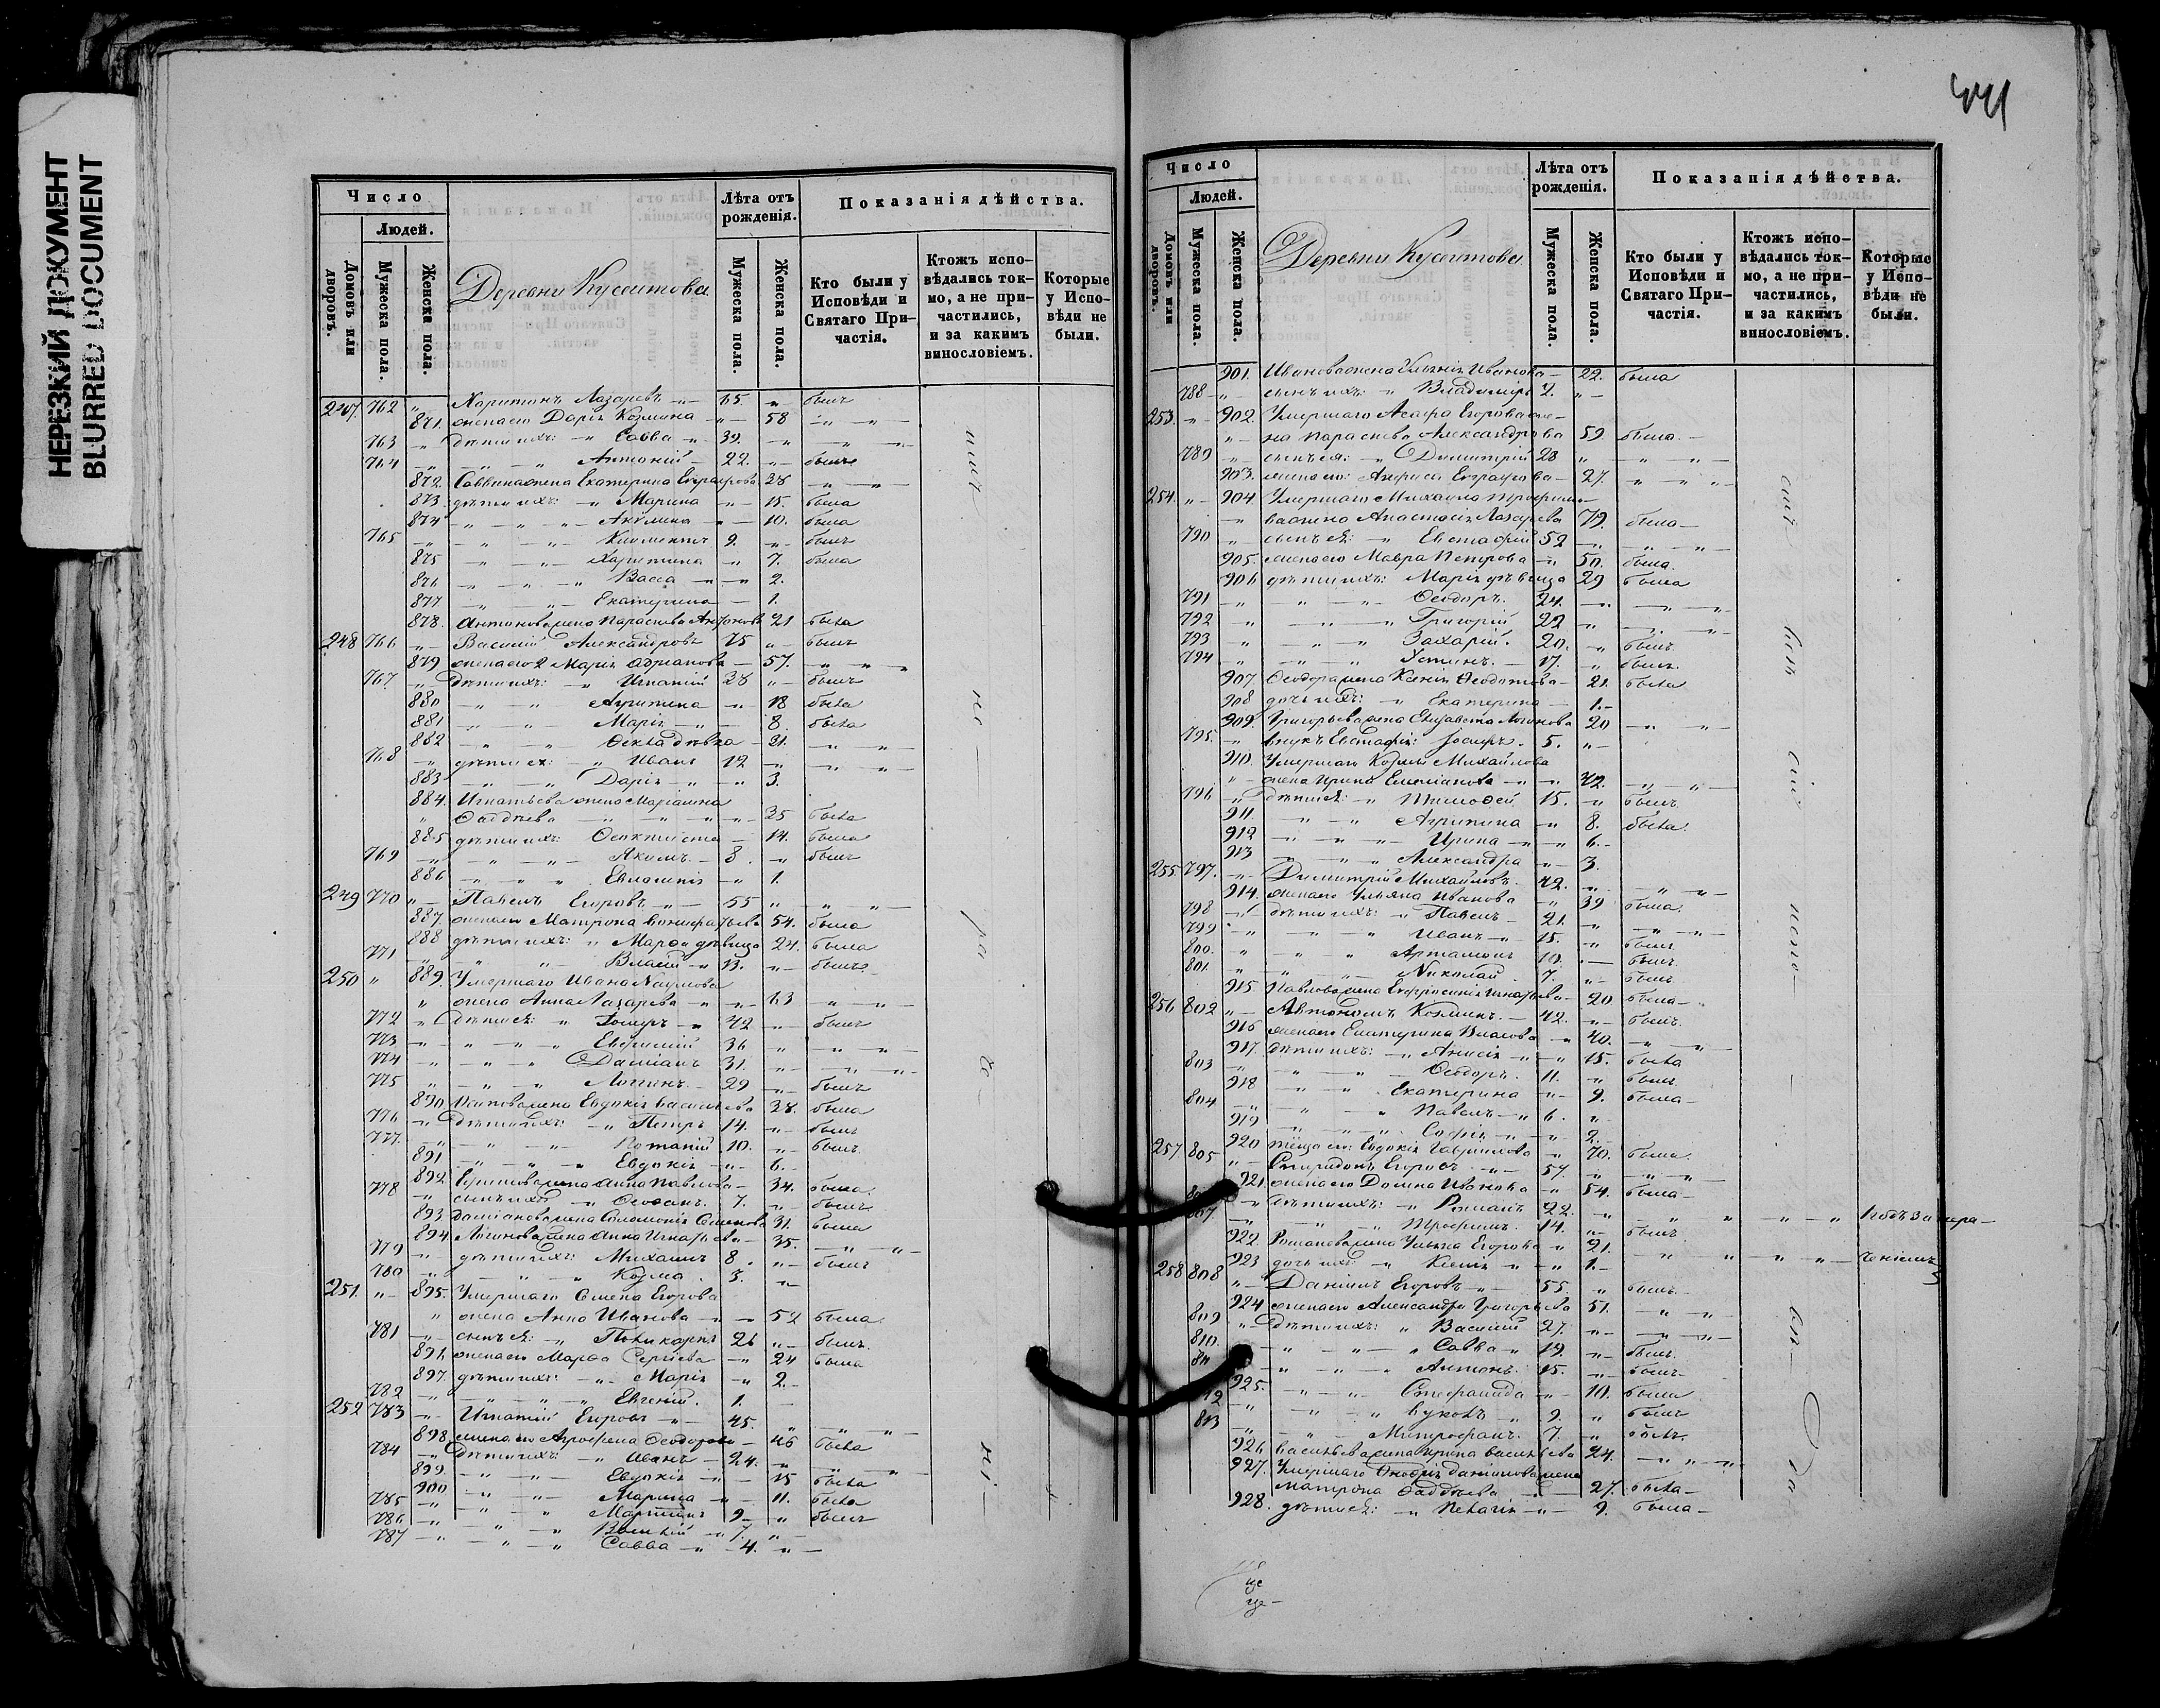 НЕРЕЗКИЙ ДОКУМЕНТ
BLURRED DOCUMENT
Число
Людей.
Домовъ или дворовъ.
Мужеска пола.
Женска пола.
Деревни
Лѣта отъ рожденія.
Мужеска пола.
Женска пола.
Показанія дѣйства.
Кто были у Исповѣди и Святаго Причастія.
Ктожъ исповѣдались токмо, а не причастились, и за какимъ винословіемъ.
Которые у Исповѣди не были.
247 762 " Харитонъ Лазаревъ 65 " былъ
871. жена его Дарія Козмина " 58 " "
763 " дѣти ихъ: " Савва " 39. " " "
764 " " " Антоній 22. " былъ
872. Саввина жена Екатерина 28 " "
873. дѣти ихъ: " Марина " 15. была
874 " " " Акулина " 10. была
765 " " " Климентъ 9. " былъ
875 " " Харитина " 7. была
876 " " " Васса " " 2.
877 " " Екатерина 1.
878. Антонова жена Параскева 21 была
248 766 " Василій Александровъ 75 " былъ
879 жена его Марія Адріанова 57. " " "
767. " Дѣти ихъ: " Игнатій 28 " былъ
880 " " Агрипина " 18 была
881 " " Марія " 8. была
882 " " Ѳекла дѣвка 31. " "
768 " дѣти ея: " Иванъ 12 " " "
883 " " Дарія " " 3.
884. Игнатьева жена Маріамна
" Ѳаддѣева " " " " 25 была
885 дѣти ихъ: Ѳеоктиста 14. была
769 " " " Якимъ. 8. " былъ
886 " " " Евлампія " 1.
249 770 " Павелъ Егоровъ " 55 " " "
887. жена его Матрона 54. была
888 дѣти ихъ: " Марѳа дѣвица 24. была
771 " " " Власій " 13. " былъ
250 " 889. Умершаго Ивана Наумова
" жена Анна Лазарева " " 63 " "
772 " Дѣти ея: " Іосифъ " 42 " былъ
773 " " " Евѳимій 36 " " "
774 " " " Даміанъ 31. " " "
775 " " " Логинъ. 29 " былъ
890 жена Евдокія Васильева 38. была
776 " Дѣти ихъ: " Петръ 14. " былъ
777. " " " Потапій 10. " былъ
891 " " " Евдокія " 6.
892 жена Анна Павлова 34. была
778 " сынъ ихъ " Ѳеофанъ. 7. " былъ
893 Даміанова жена Соломонія Семенова 31. была
894 Логинова жена Анна Игнатьева 35. " "
779 " дѣти ихъ: Михаилъ 8. " былъ
780 " " " Козма. 3. "
251. " 895. Умершаго Семена Егорова
" жена Анна Иванова " 52 была
781 " сынъ ея: " Поликарпъ 26 " былъ.
896 жена его Марѳа Сергіева " 24 была
897. дѣти ихъ: " Марія " 2.
782 " " " " Евгеній. 1.
252 783 " Игнатій Егоровъ " 45. " " "
898 жена его Агрофена Ѳеодорова 46 была
784 " Дѣти ихъ: " Иванъ 24. " " "
899. " " Евдокія " 15 была
900 " " " Марина " 11. была
785 " " " Мартинъ 9 " былъ
786 " " " " 7. "
787 " " " Савва " 4. "
Число
Людей.
Домовъ или дворовъ.
Мужеска пола.
Женска пола.
Деревни
Лѣта отъ рожденія.
Мужеска пола.
Женска пола.
Показанія дѣйства.
Кто были у Исповѣди и Святаго Причастія.
Ктожъ исповѣдались токмо, а не причастились, и за какимъ винословіемъ.
Которые у Исповѣди не были.
901. Иванова жена Иванова 22. была
788 " сынъ ихъ: " Владимиръ 2. "
253. " 902. Умершаго Егорова же-
" на Параскева Александрова 59 была.
789 " сынъ ея: " Димитрій 28 " " "
903. жена его: Анфиса 27. " " "
254. " 904 Умершаго Михаила Трофимо-
" ва жена Анастасія Лазарева 79. была
790 " сынъ ея: " Евстафій 52 " " "
905. жена его Мавра Петрова " 50. была.
906 дѣти ихъ: Марія дѣвица 29 была
791 " " " Ѳеодоръ. 24. " " "
792 " " " Григорій 22 " " "
793 " " " Захарій. 20. " былъ
794 " " " Устинъ. 17. " былъ.
907 Ѳеодора жена Ксенія Ѳедотова 21. была
908 дочь ихъ: " Екатерина 1.
909. Григорьева жена Елисавета Логинова 20 " "
795. " внукъ Евстафія: Іосифъ. 5. "
910. Умершаго Козмы Михайлова
" жена Ирина Емеліанова " " 42. " "
796 " Дѣти ея: " Тимоѳей 15. " былъ
911. " " Агрипина " 8. была.
912 " " " Ирина " " 6.
913 " " " Александра " 3.
255 797. " Димитрій Михайловъ. 42. " " "
914. жена его Ульяна Иванова " 39 была.
798 " дѣти ихъ: " Павелъ 21. " " "
799 " " " Иванъ " 15. " былъ.
800. " " " Артамонъ 10. былъ.
801. " " " Николай. 7. " былъ
915 Павлова жена Евфросинія Игнатьева 20 была
256 802 " Автономъ Козминъ. 42. " былъ.
916 жена его Екатерина Власова " 40. " "
917. дѣти ихъ: " Анисія " 15. была
803 " " " Ѳеодоръ. 11. " былъ.
918 " " Екатерина " 9. была
804 " " " Павелъ " 6. "
919 " " " Софія " " 2.
920 теща его: Евдокія Гаврилова " 70. была.
257 805 " Спиридонъ Егоровъ " 57. " " "
921. жена его Домна Иванова " 54. была
" дѣти ихъ: " Романъ 22. " " " " " Подъ замѣра-
807. " " " Трофимъ. 14. " былъ.
922. Романова жена Ульяна Егорова " 21. " " " "
923 дочь ихъ " Ксенія " " 1.
258 808 " Даніилъ Егоровъ " 55. " былъ.
924 жена его Александра Григорьева 51. " "
809 " Дѣти ихъ: " Василій 27. " " "
810. " " " Савва " 19. " былъ.
811 " " " Антонъ. 15. " былъ.
925. " " Стефанида " 10. была
" " " Вуколъ " 9. " былъ
813 " " " Митрофанъ. 7. " былъ.
926. Васильева жена Ирина Васильева 24. " " "
927. Умершаго Даніилова жена
Матрона Ѳаддѣева 27. была
928. дѣти ея: " Пелагія " 9. была